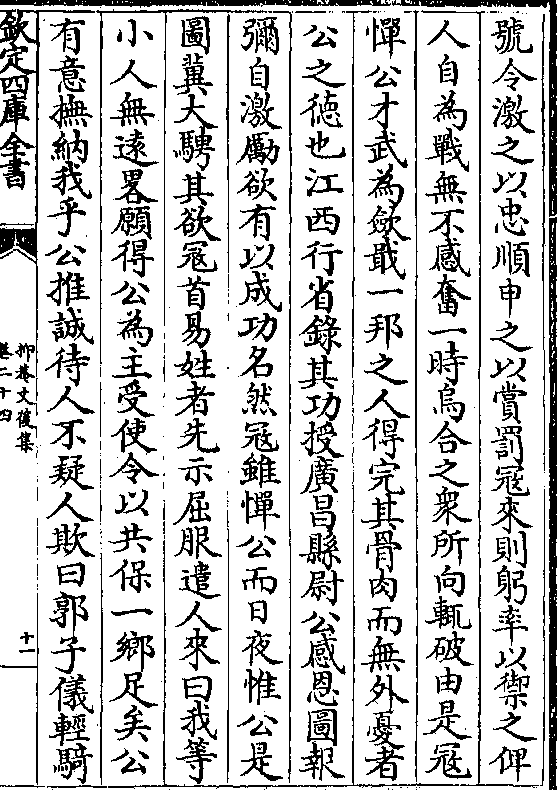 號令激之以忠順申之以賞罰冦來則躬率以禦之俾
人自為戰無不感奮一時烏合之衆所向輒破由是冦
憚公才武為歛戢一邦之人得完其骨肉而無外憂者
公之徳也江西行省錄其功授廣昌縣尉公感恩圖報
彌自激勵欲有以成功名然冦雖憚公而日夜惟公是
圖冀大騁其欲冦首易姓者先示屈服遣人來曰我等
小人無遠畧願得公為主受使令以共保一鄉足矣公
有意撫納我乎公推誠待人不疑人欺曰郭子儀輕騎
欽定四庫全書
抑菴文後集
卷二十四
十一